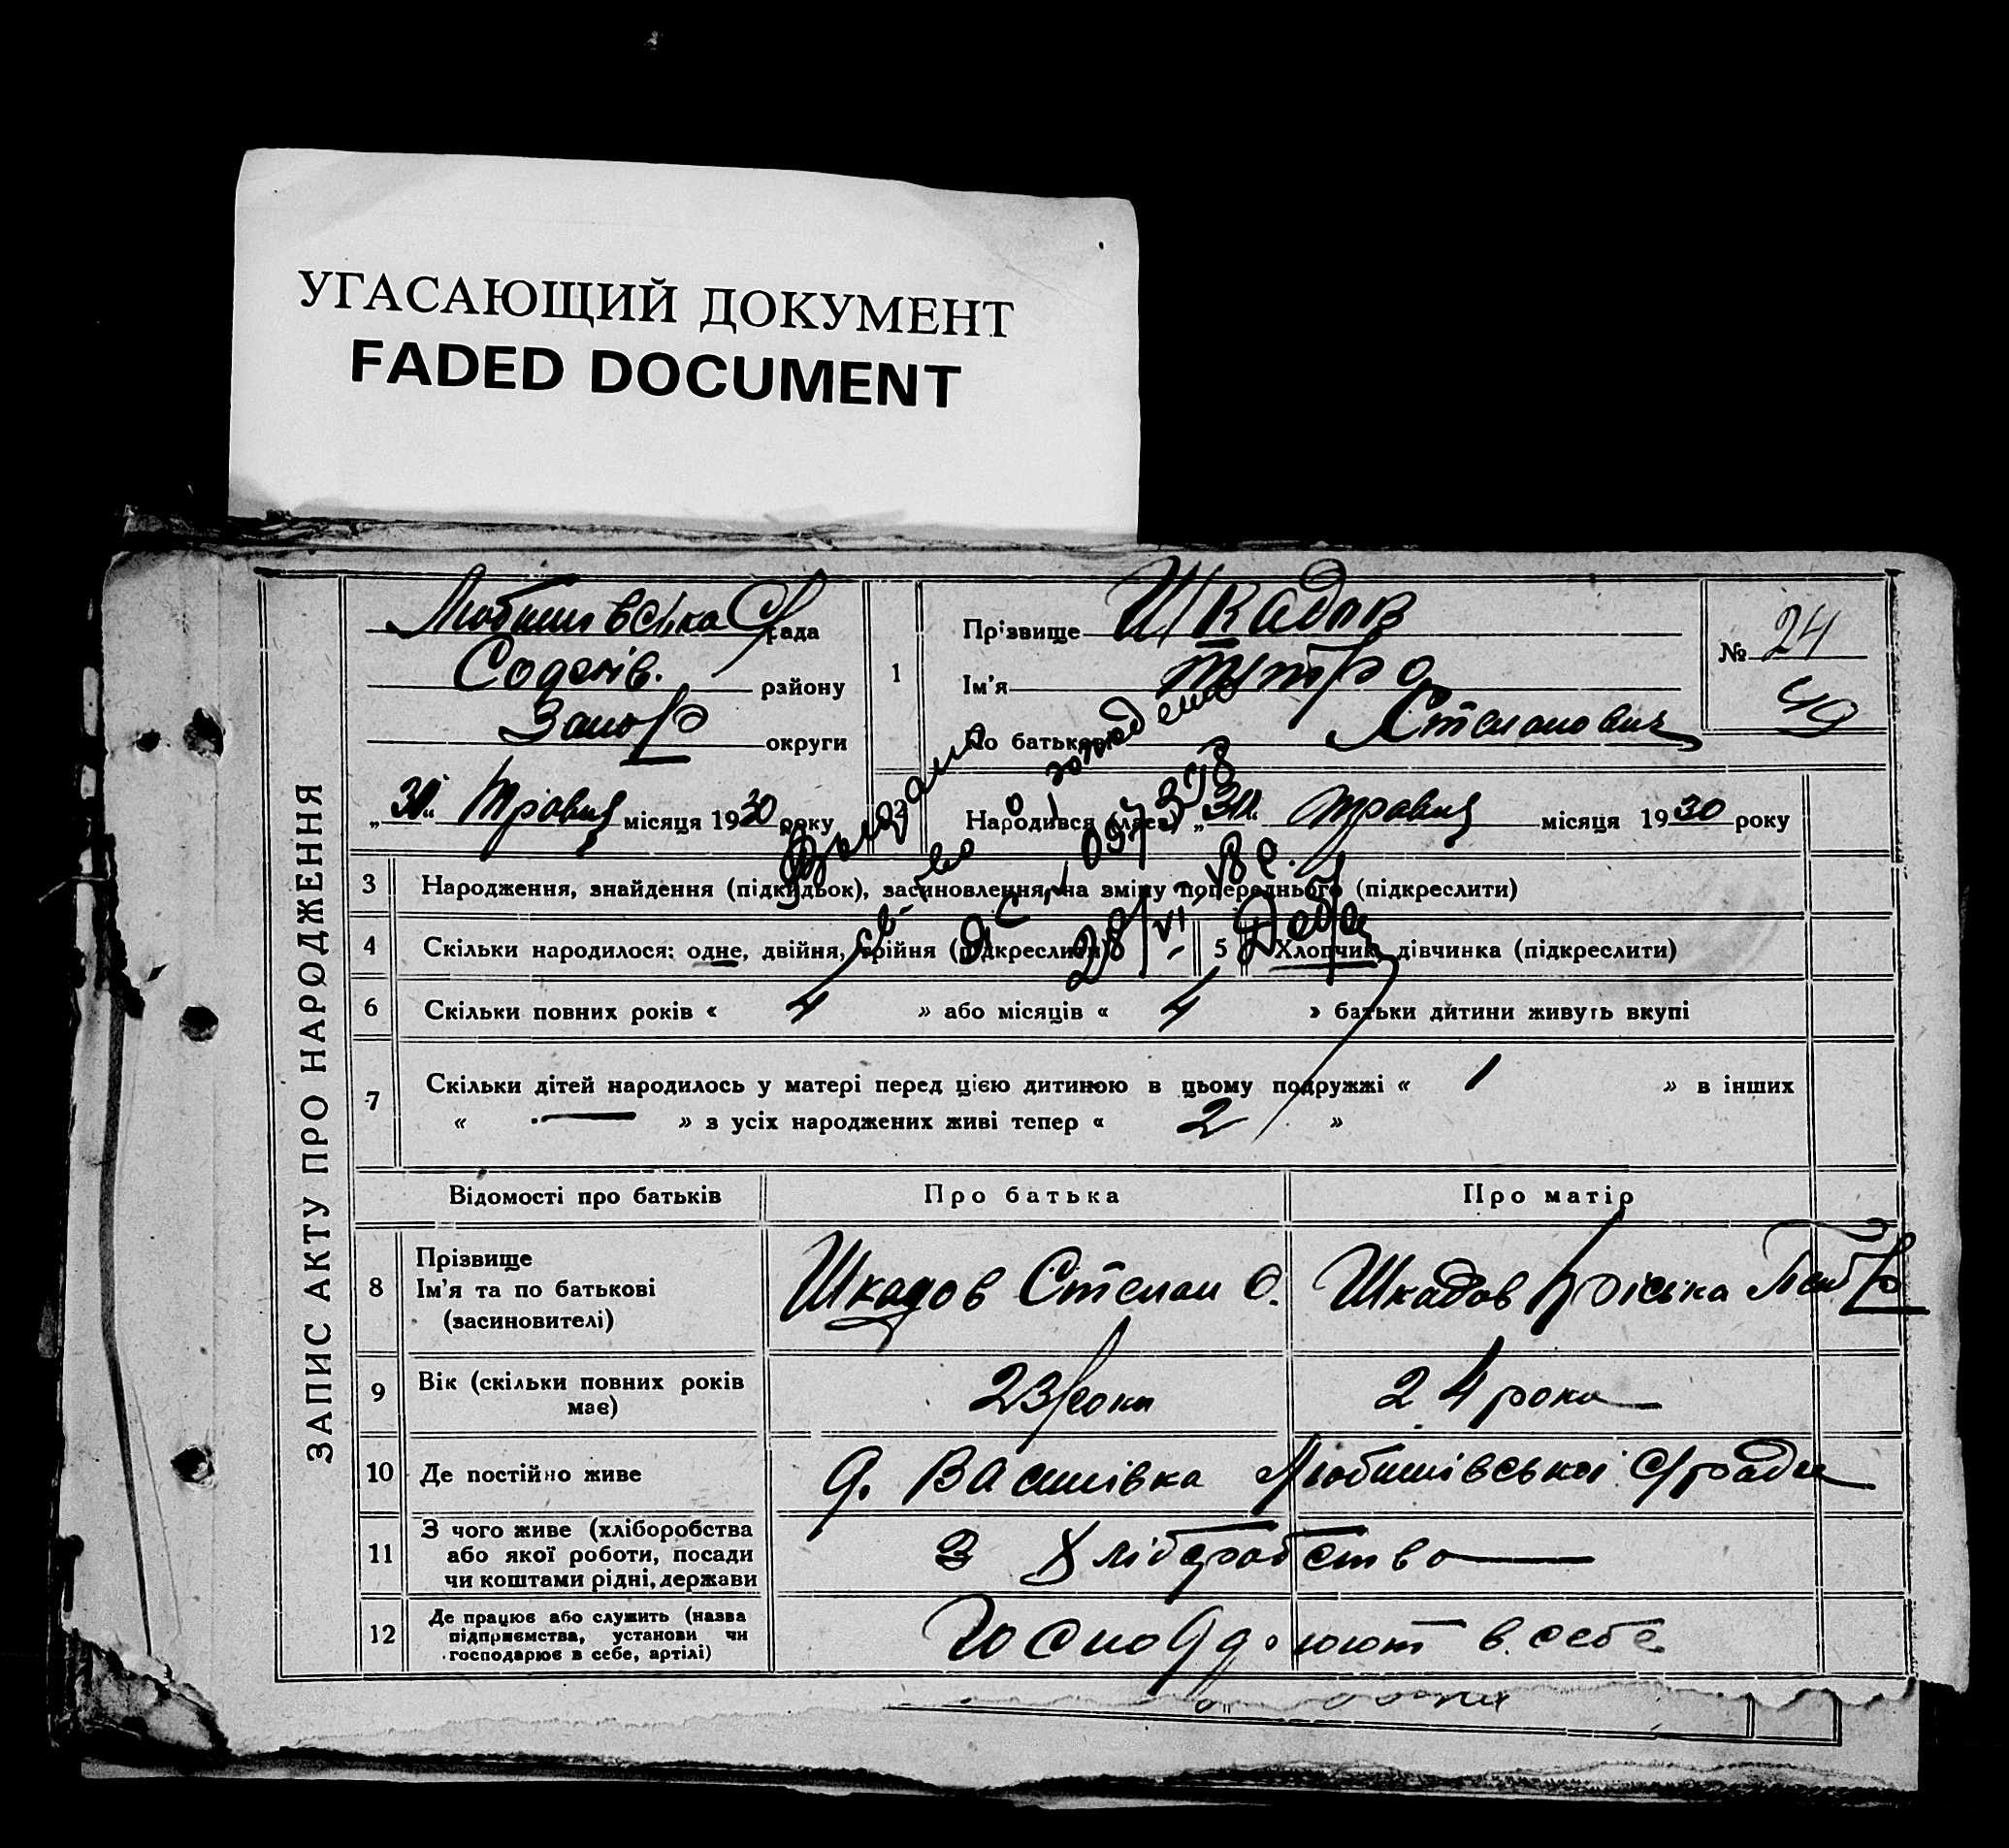 УГАСАЮЩИЙ ДОКУМЕНТ
FADED DOCUMENT
ЗАПИС АКТУ ПРО НАРОДЖЕННЯ
Любимівська С/рада
району
Запор округи
„31“ Травня місяця 1930 року
1
Прізвище Шкадов
Ім'я Петро
По батькові Степанович
№ 24
49
Народився (лася) „31“ Травня місяця 1930 року
3 Народження, знайдення (підкидьок), засиновлення, на зміну попереднього (підкреслити)
4 Скільки народилося: одне, двійня, трійня (підкреслити) 5 Хлопчик, дівчинка (підкреслити)
6 Скільки повних років « 4 » або місяців « 4 » батьки дитини живуть вкупі
7 Скільки дітей народилось у матері перед цією дитиною в цьому подружжі « 1 » в інших
« — » з усіх народжених живі тепер « 2 »
Відомості про батьків Про батька Про матір
8 Прізвище
Ім'я та по батькові
(засиновителі)
Шкадов Степан О. Шкадов
9 Вік (скільки повних років
має)
23 роки 24 роки
10 Де постійно живе
Василівка Любимівської С/ради
11 З чого живе (хліборобства
або якої роботи, посади
чи коштами рідні, держави
З Хліборобство
12 Де працює або служить (назва
підприємства, установи чи
господарює в себе, артілі)
в себе